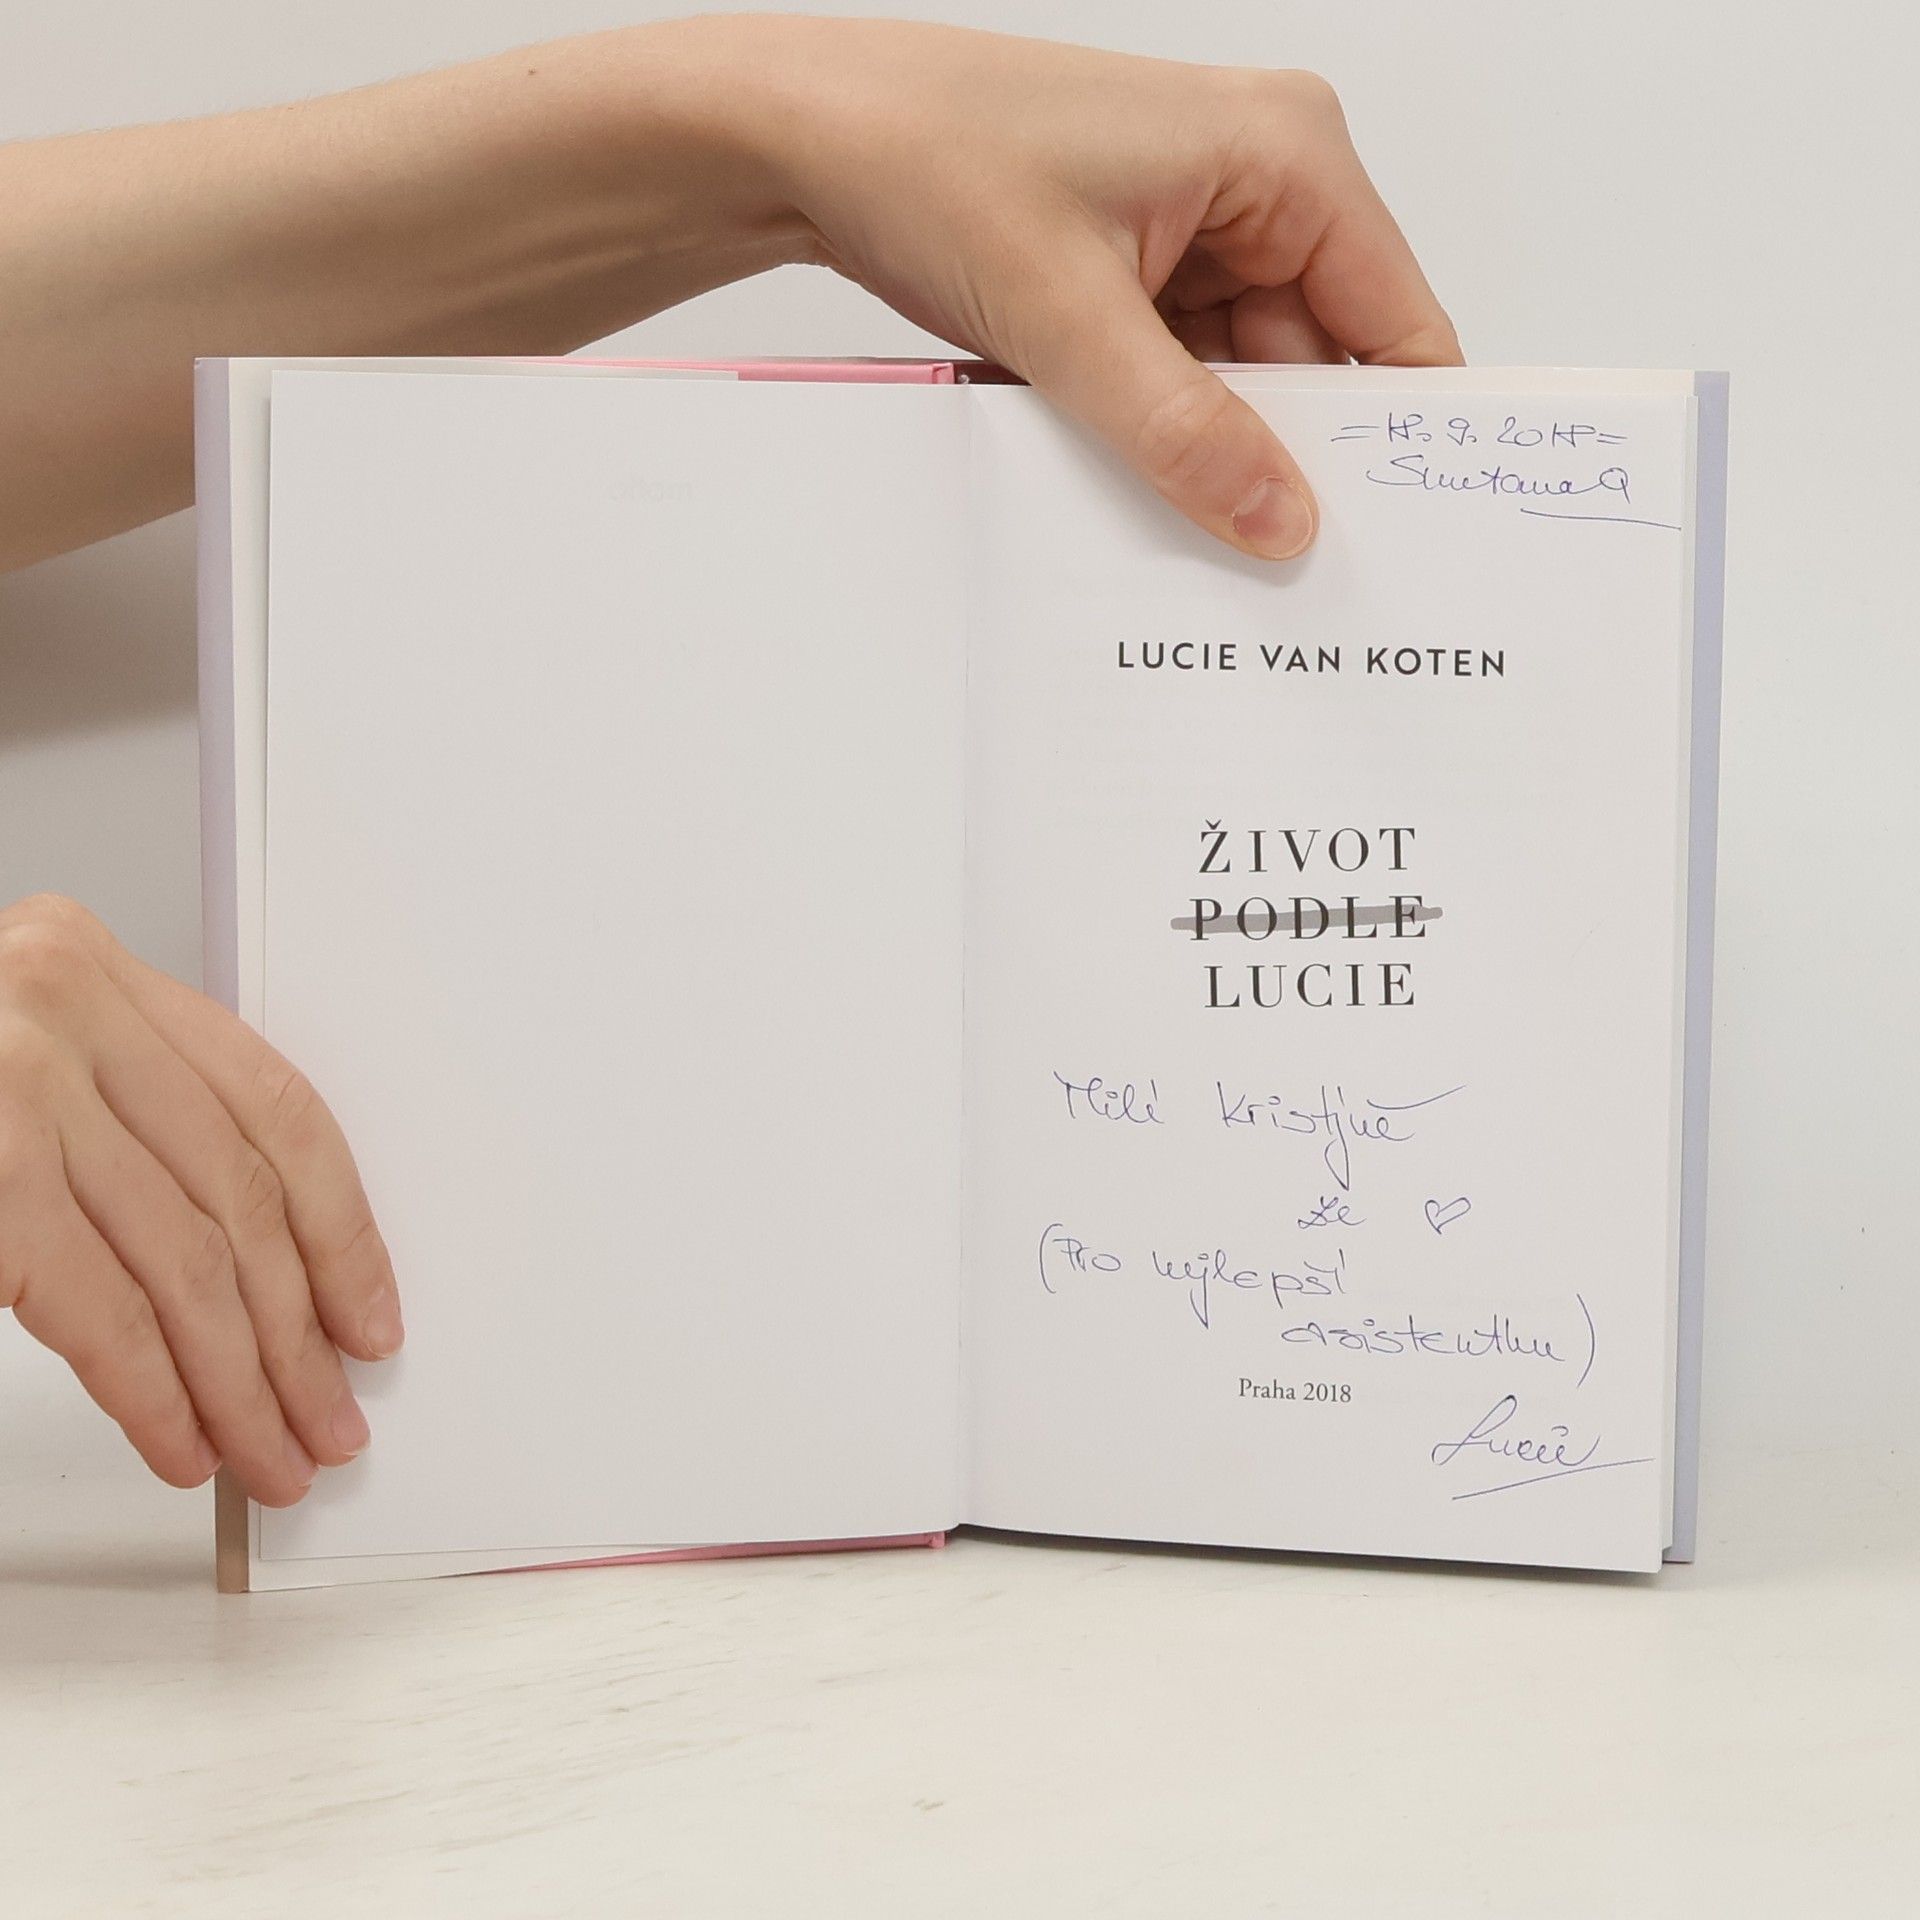 =18. 9. 2018=
SmetanaQ
LUCIE VAN KOTEN
ŽIVOT
PODLE
LUCIE
Milé Kristýně
ze ♡
(Pro nejlepší
asistentku)
Praha 2018
Lucie